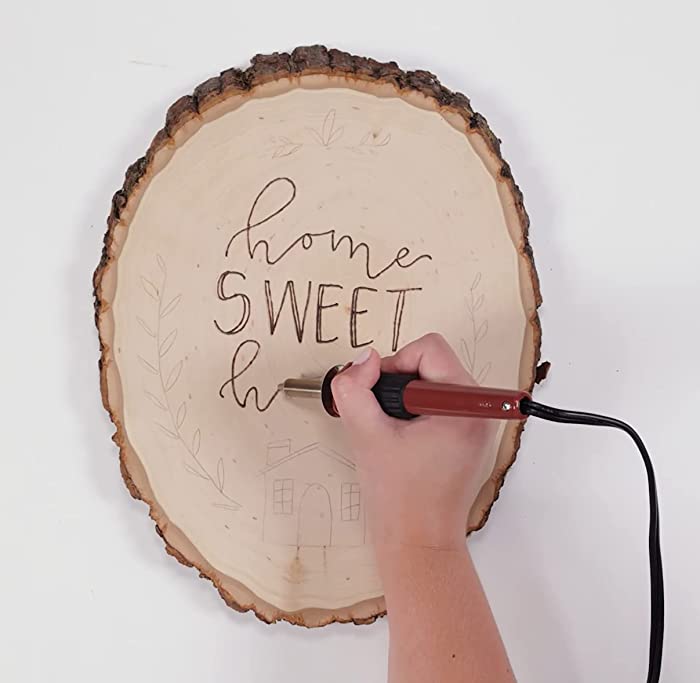 home
SWEET
h